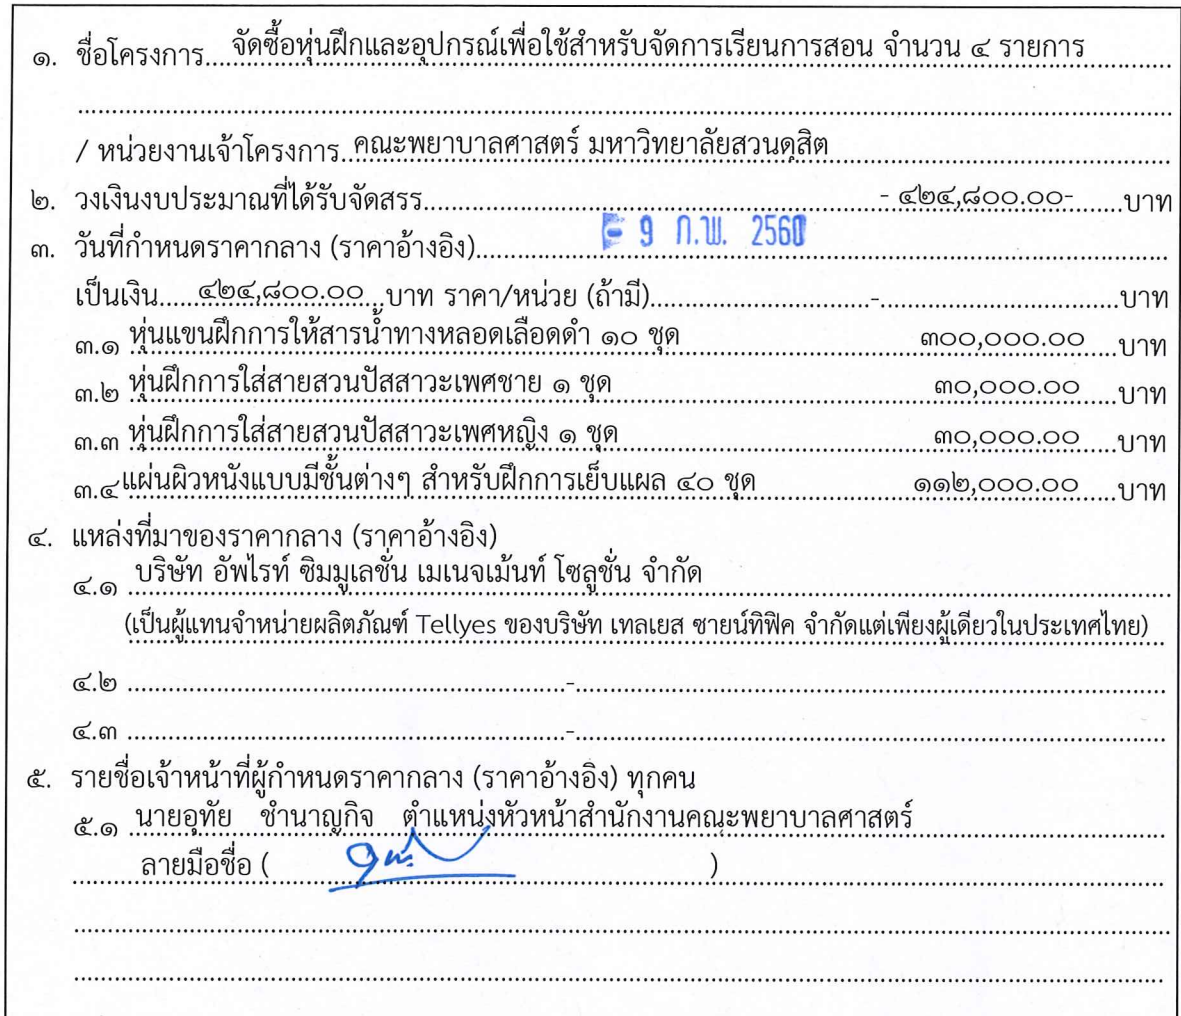 ๑. ชื่อโครงการ....จัดซื้อหุ่นฝึกและอุปกรณ์เพื่อใช้สำหรับจัดการเรียนการสอน จำนวน ๔ รายการ
/ หน่วยงานเจ้าโครงการ..คณะพยาบาลศาสตร์ มหาวิทยาลัยสวนดุสิต
๒. วงเงินงบประมาณที่ได้รับจัดสรร.....- ๔๒๔,๘๐๐.๐๐-.....บาท
๓. วันที่กำหนดราคากลาง (ราคาอ้างอิง).....- 9 ก.พ. 2560
เป็นเงิน.....๔๒๔,๘๐๐.๐๐...บาท ราคา/หน่วย (ถ้ามี).....-.....บาท
๓.๑ หุ่นแขนฝึกการให้สารน้ำทางหลอดเลือดดำ ๑๐ ชุด ๓๐๐,๐๐๐.๐๐ ....บาท
๓.๒ หุ่นฝึกการใส่สายสวนปัสสาวะเพศชาย ๑ ชุด ๓๐,๐๐๐.๐๐ ....บาท
๓.๓ หุ่นฝึกการใส่สายสวนปัสสาวะเพศหญิง ๑ ชุด ๓๐,๐๐๐.๐๐ ....บาท
๓.๔ แผ่นผิวหนังแบบมีชั้นต่างๆ สำหรับฝึกการเย็บแผล ๔๐ ชุด ๑๑๒,๐๐๐.๐๐ ....บาท
๔. แหล่งที่มาของราคากลาง (ราคาอ้างอิง)
๔.๑ บริษัท อัพไรท์ ซิมมูเลชั่น เมเนจเม้นท์ โซลูชั่น จำกัด
(เป็นผู้แทนจำหน่ายผลิตภัณฑ์ Tellyes ของบริษัท เทลเยส ซายน์ทิฟิค จำกัดแต่เพียงผู้เดียวในประเทศไทย)
๔.๒ .....-.....
๔.๓ .....-.....
๕. รายชื่อเจ้าหน้าที่ผู้กำหนดราคากลาง (ราคาอ้างอิง) ทุกคน
๕.๑ นายอุทัย ชำนาญกิจ ตำแหน่งหัวหน้าสำนักงานคณะพยาบาลศาสตร์
ลายมือชื่อ ( )